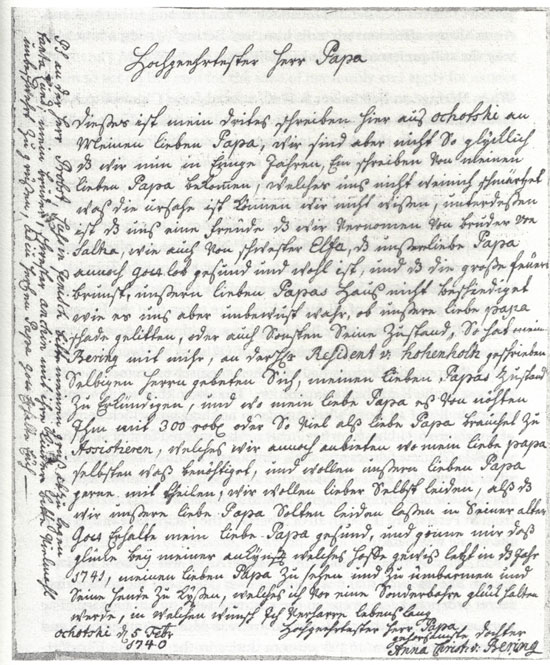 Hochgeehrtester Herr Papa
Dieses ist mein drites schreiben hier aus ochotski an
Meinen lieben Papa, wir sind aber nicht So glücklich
dß wir nun in Einige Jahren, Ein schreiben Von meinen
lieben Papa bekomen, welches uns nicht wenich schmärtzet
waß die ursache ist können wir nicht wißen, unterdeßen
ist dß uns eine freude dß wir Vernomen Von bruder
wie auch Von schwester Elsa, dß unser liebe Papa
annoch gott lob gesund und wohl ist, und dß die große feuers
brunst, unsern lieben Papas Haus nicht beschediget
wie es uns aber unbewust wahr, ob unsere liebe papa
schade gelitten, oder auch Sonsten Seine Zustand, So hat mein
Bering mit mihr, an der Hr Resident v: hohenholz geschrieben
Selbigen Herrn gebeten Sich, meinen lieben Papas Zustand
Zu Erkündigen, und wo mein liebe Papa es Von nöhten
Ihm mit 300 robl oder So Viel alß liebe Papa brauchet Zu
Assistieren, welches wir annoch anbieten wo mein liebe papa
selbsten waß benöhtiget, und wollen unsern lieben Papa
gerne mit theilen, wir wollen lieber Selbst leiden, alß dß
wir unsere liebe Papa Solten leiden laßen in Seiner alter
Gott Erhalte mein liebe Papa gesund, und gönne mir daß
glück bey meiner ankunft welches hoffe gewiß letzt in dß Jahr
1741, meinen lieben Papa Zu sehen und Zu umbarmen und
Seine hende Zu küßen, welches ich Vor eine Sonderbahre glück halten
werde, in welchen wunsch Ich Verharre lebens lang
Hochgeehrtester Herr Papa
gehorsamste dochter
Anna Christ: v: Bering
ochotski d 5 Febr
1740
PS an d. Herr Probst